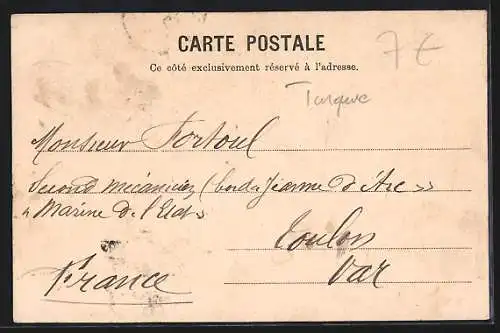 CARTE POSTALE
7 €
Ce côté exclusivement réservé à l'adresse.
Turquie
Monsieur Fortoul
Second mécanicien (bord "Jeanne d'Arc"
"Marine de l'Etat"
Toulon
Var
France